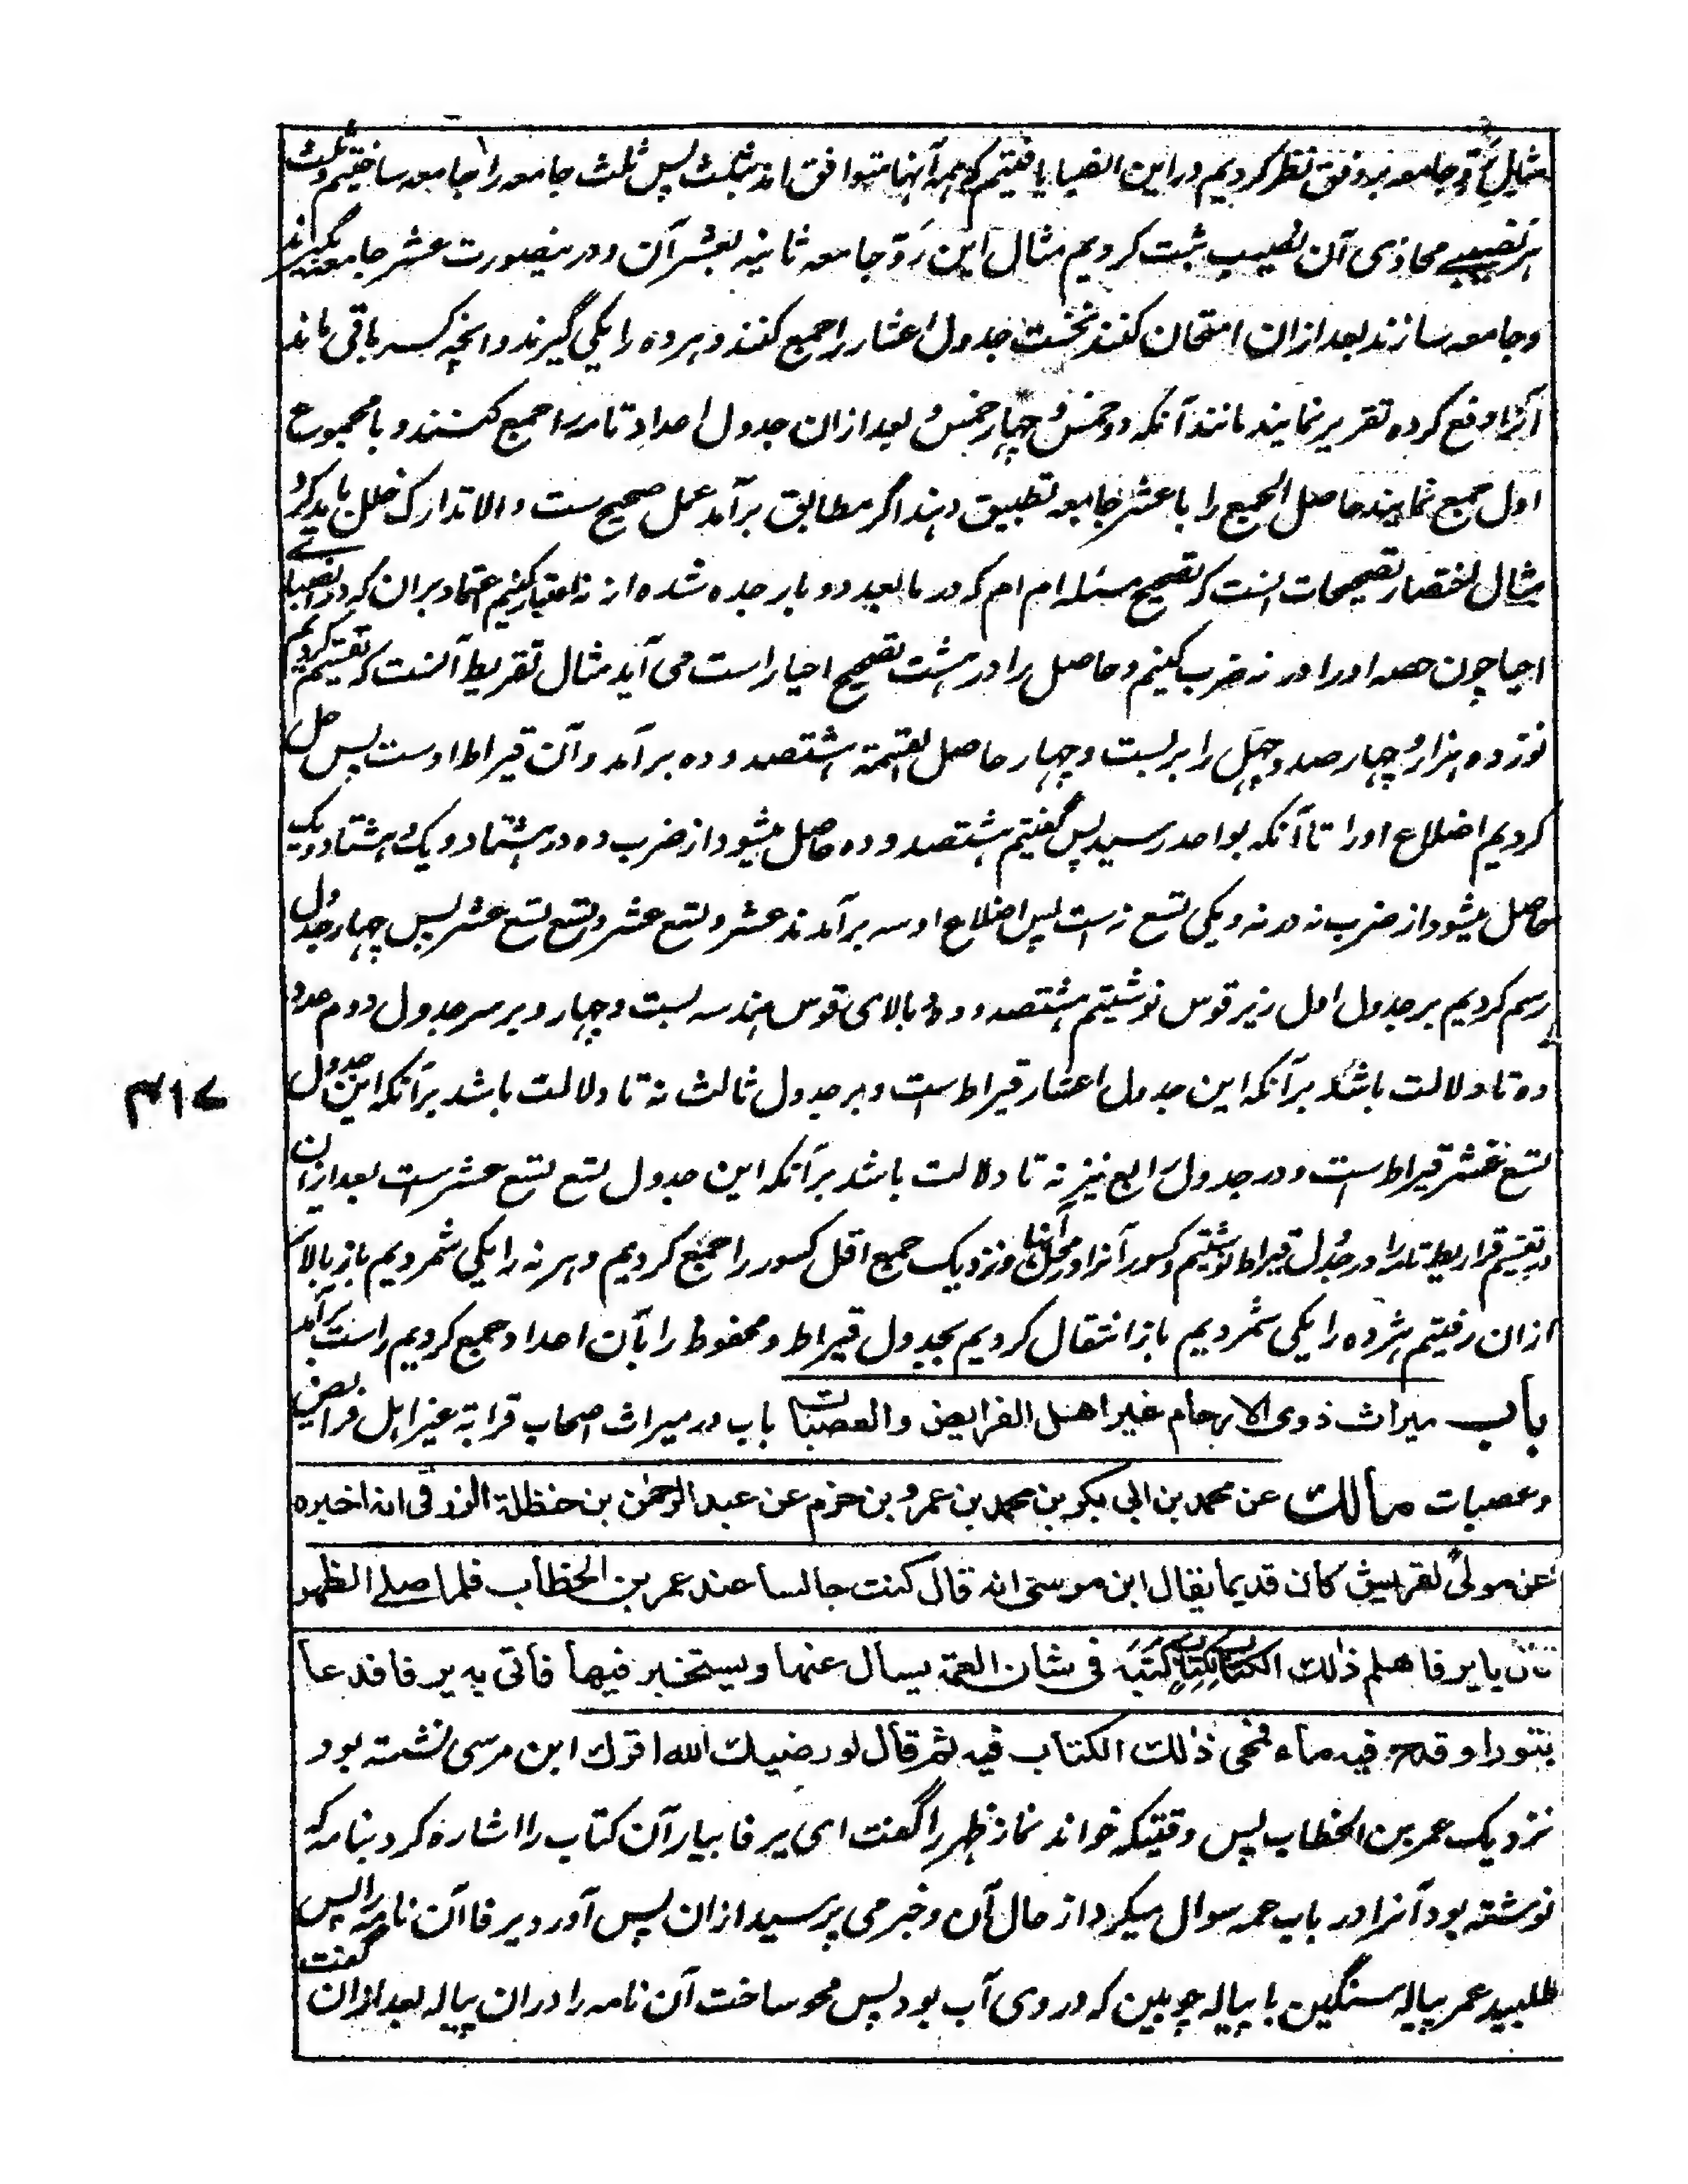 مثال رد جامعه بر وفق نظر کردیم در این انصبا یافتیم که همه آنها متوافق اند بثلث پس ثلث جامعه را جامعه ساختیم و ثلث
هر نصیبے محاذی آن نصیب ثبت کردیم مثال این رد جامعه ثانیه بعشر آن و درینصورت عشر جامعه بگیرند
و جامعه سازند بعد ازان امتحان کنند نخست جدول اعشار را جمع کنند و هر ده را یکی گیرند و انچه کسر باقی ماند
آنرا رفع کرده تقریر نمایند مانند آنکه دو خمس و چهار خمس و بعد ازان جدول اعداد تامه را جمع کنند و با مجموع
اول جمع نمایند حاصل الجمع را با عشر جامعه تطبیق دهند اگر مطابق برآمد عمل صحیح ست و الا تدارک خلل باید کرد
مثال اختصار تصحیحات انست که تصحیح مسئله ام ام که در ما بعد دو بار جده شده از نه اعتبار کنیم اعتماد بران که در انصبائے
احیا چون حصه او را در نه ضرب کنیم و حاصل را در هشت تصحیح احیا راست می آید مثال تقریط آنست که تقسیم کردیم
نوزده هزار و چهار صد و چهل را بر بست و چهار حاصل القسمة هشتصد و ده برآمد و آن قیراط اوست پس حل
کردیم اضلاع او را تا آنکه بواحد رسید پس گفتیم هشتصد و ده حاصل میشود از ضرب ده در هشتاد و یک و هشتاد و یک
حاصل میشود از ضرب نه در نه و یکی تسع نه است پس اضلاع او سه برآمدند عشر و تسع عشر و تسع تسع عشر پس چهار جدول
رسم کردیم بر جدول اول زیر قوس نوشتیم هشتصد و ده و بالای قوس هندسه بست و چهار و بر سر جدول دوم عدد
ده تا دلالت باشد برآنکه این جدول اعشار قیراط است و بر جدول ثالث نه تا دلالت باشد برآنکه این جدول
تسع عشر قیراط است و در جدول رابع نیز نه تا دلالت باشد برآنکه این جدول تسع تسع عشر ست بعد ازان
در تقسیم قراریط تامه را در جدول قیراط نوشتیم و کسور آنرا در محل آنها و نزدیک جمع اقل کسور را جمع کردیم و هر نه را یکی شمردیم باز بالاتر
ازان رفتیم هر ده را یکی شمردیم باز انتقال کردیم بجدول قیراط و محفوظ را بآن اعداد جمع کردیم راست برآمد
باب میراث ذوی الارحام غیر اهل الفرایض والعصبات باب در میراث اصحاب قرابة غیر اهل فرایض
و عصبات مالك عن محمد بن ابی بکر بن محمد بن عمرو بن حزم عن عبد الرحمن بن حنظلة الزرقی انه اخبره
عن مولیً لقریش کان قدیما یقال ابن موسی انه قال کنت جالسا عند عمر بن الخطاب فلما صلے الظهر
قال یا یرفا هلم ذلك الکتاب لکتاب کتبه فی شان العمة یسال عنها ویستخبر فیها فاتی به یرفا فدعا
بتور او قدح فیه ماء فمحی ذلك الکتاب فیه ثم قال لو رضیك الله اقرك ابن مرسی نشسته بود
نزدیک عمر بن الخطاب پس وقتیکه خواند نماز ظهر را گفت ای یرفا بیار آن کتاب را اشاره کرد بنامه که
نوشته بود آنرا در باب عمه سوال میکرد از حال آن و خبر می پرسید ازان پس آورد یرفا آن نامه را پس
طلبید عمر پیاله سنگین یا پیاله چوبین که در وی آب بود پس محو ساخت آن نامه را دران پیاله بعد ازان گفت
۴۱۷